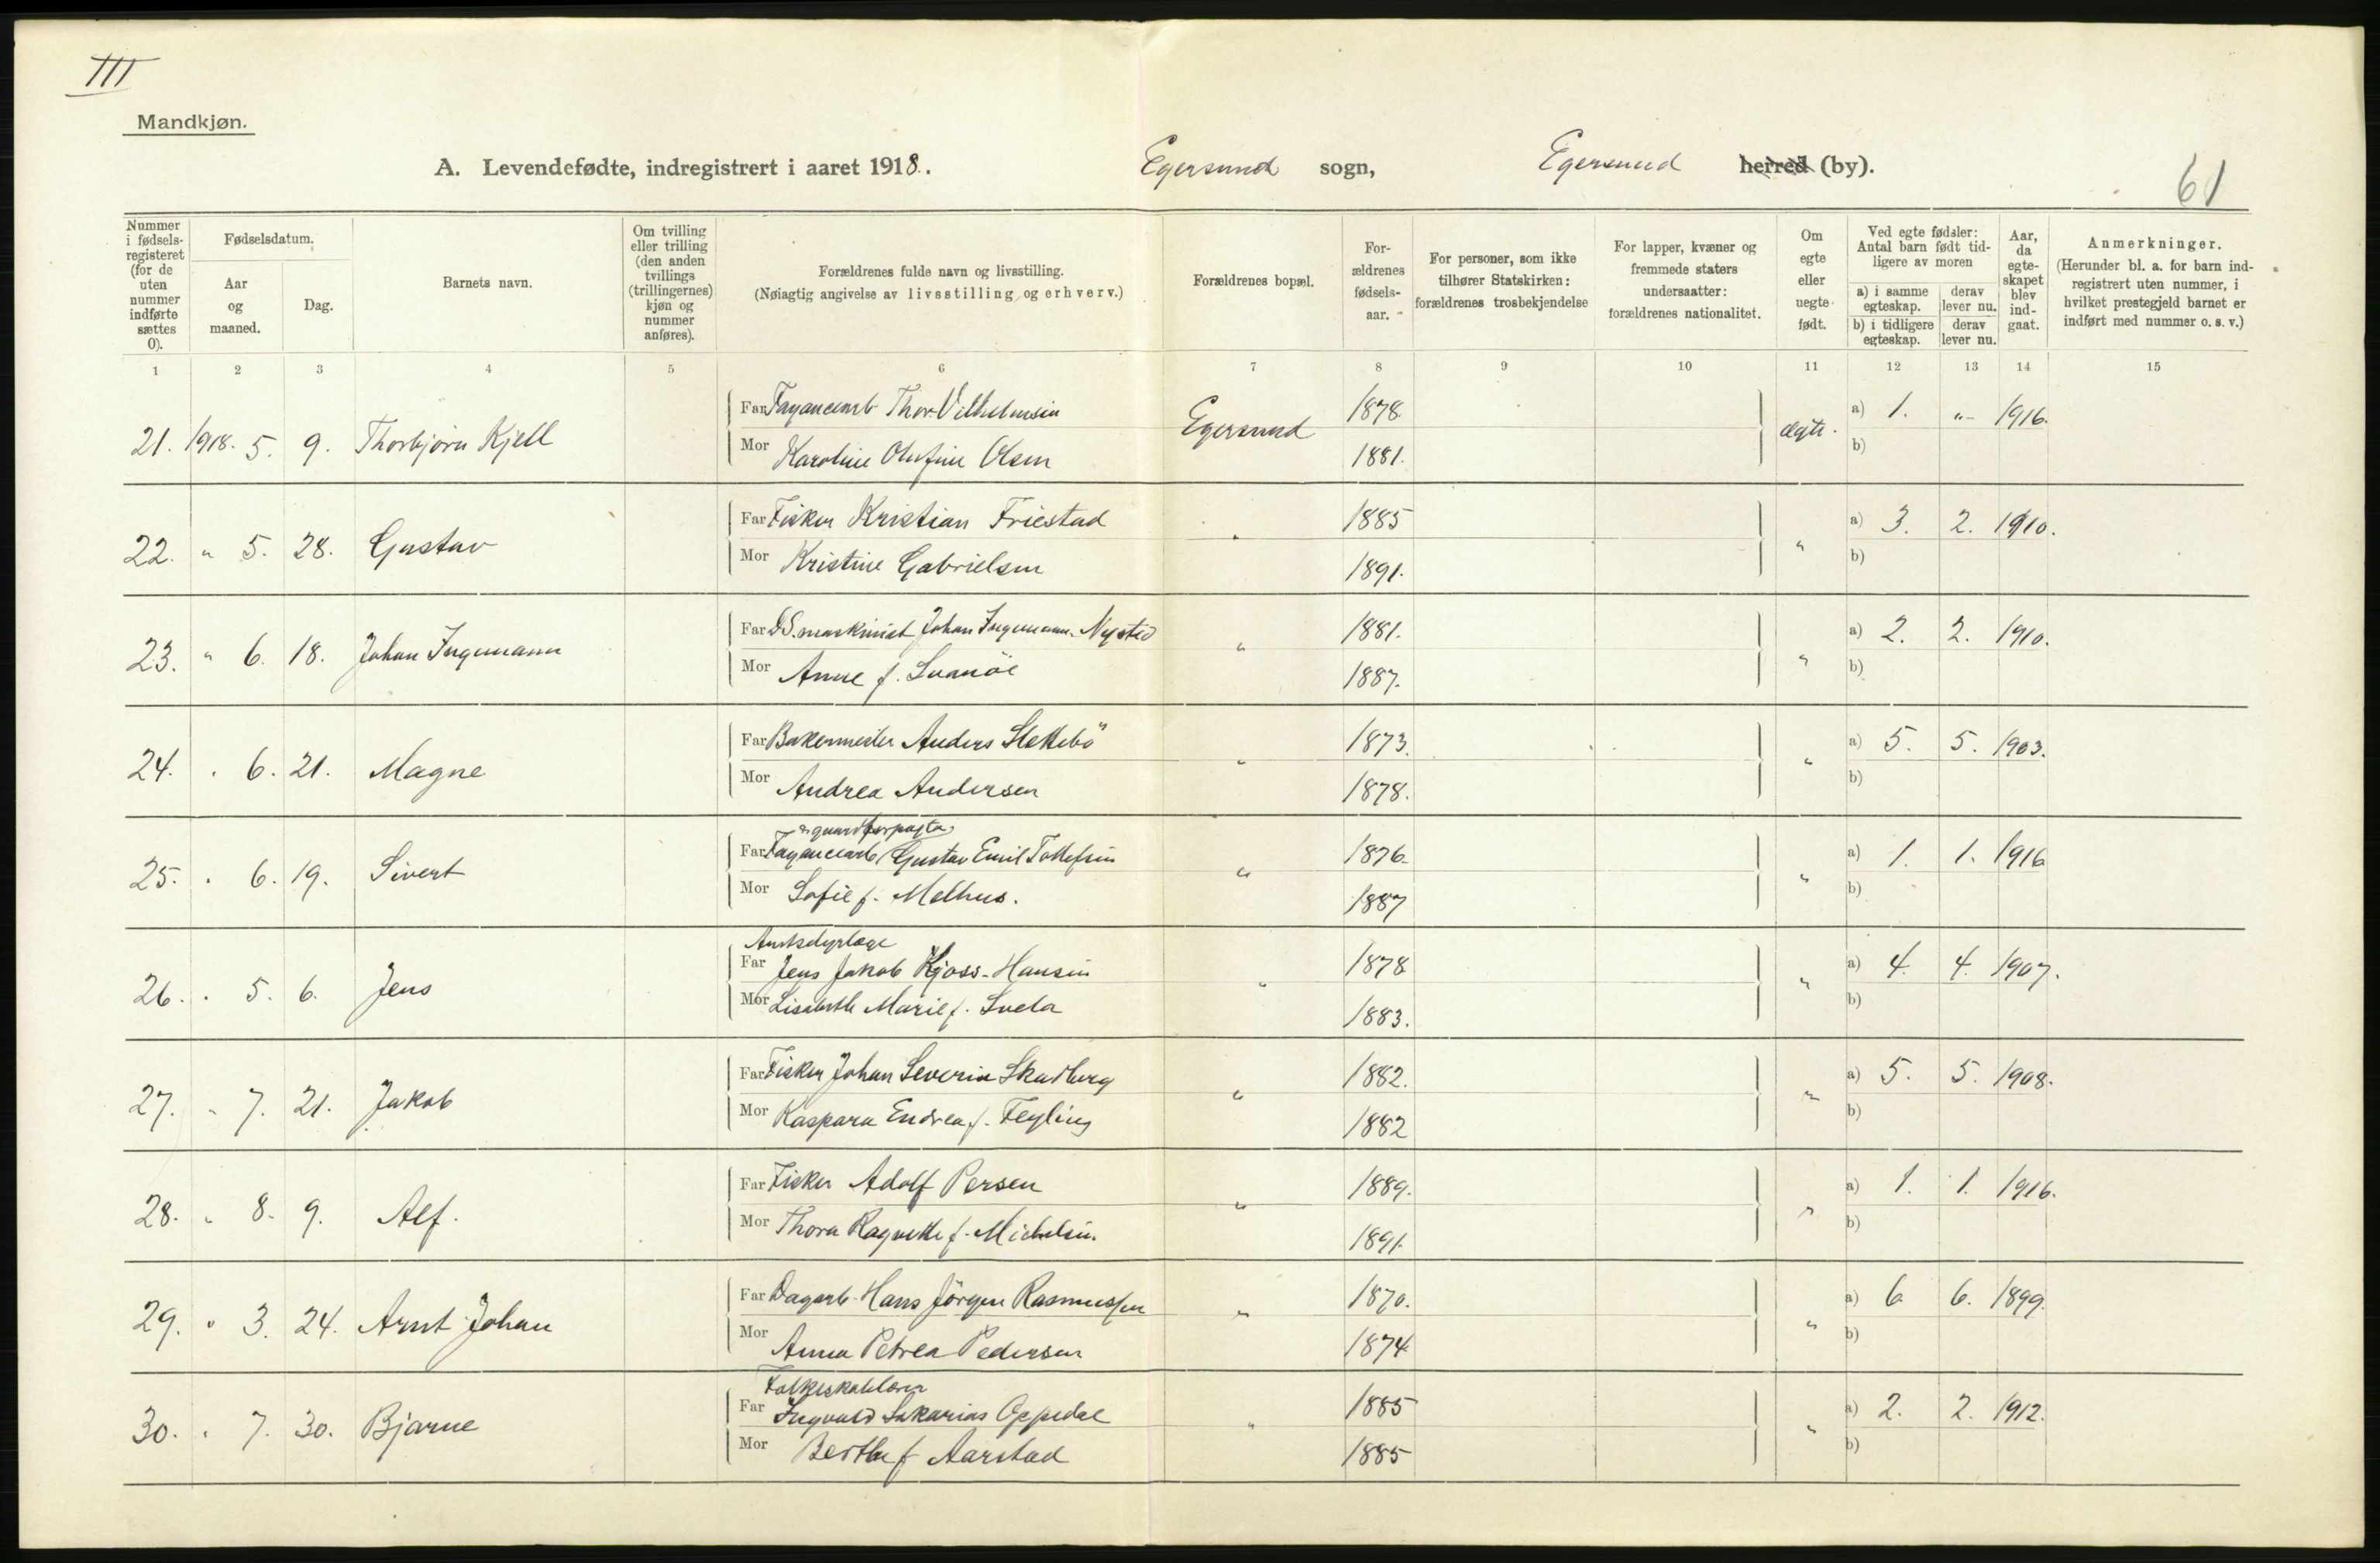 III
Mandkjøn.
A. Levendefødte, indregistrert i aaret 1918. Egersund sogn, Egersund herred (by).
61
Nummer i fødsels-registeret (for de uten nummer indførte sættes 0).
Fødselsdatum.
Aar og maaned.
Dag.
Barnets navn.
Om tvilling eller trilling (den anden tvillings (trillingernes) kjøn og nummer anføres).
Forældrenes fulde navn og livsstilling.
(Nøiagtig angivelse av livsstilling og erhverv.)
Forældrenes bopæl.
For-ældrenes fødsels-aar.
For personer, som ikke tilhører Statskirken: forældrenes trosbekjendelse
For lapper, kvæner og fremmede staters undersaatter: forældrenes nationalitet.
Om egte eller uegte født.
Ved egte fødsler: Antal barn født tid-ligere av moren
a) i samme egteskap. derav lever nu.
b) i tidligere egteskap. derav lever nu.
Aar, da egte-skapet blev ind-gaat.
Anmerkninger.
(Herunder bl. a. for barn ind-registrert uten nummer, i hvilket prestegjeld barnet er indført med nummer o. s. v.)
1 2 3 4 5 6 7 8 9 10 11 12 13 14 15
Far Fayancearb Thor Vilhelmsen 1878 a) 1. "- 1916.
21. 1918. 5. 9. Thorbjørn Kjell Egersund ægte.
Mor Karoline Olufine Olsen 1881. b)
Far Fisker Kristian Friestad 1885 a) 3. 2. 1910.
22. " 5. 28. Gustav " "
Mor Kristine Gabrielsen 1891. b)
Far DS. maskinist Johan Ingemann Nysted 1881. a) 2. 2. 1910.
23. " 6. 18. Johan Ingemann " "
Mor Anne f. Svanöe 1887. b)
Far Bakermester Anders Slettebö 1873. a) 5. 5. 1903.
24. " 6. 21. Magne " "
Mor Andrea Andersen 1878. b)
Far Fayancearb Gustav Emil Tollefsen 1876. a) 1. 1. 1916
25. " 6. 19. Sivert " "
Mor Sofie f. Melhus. 1887 b)
Amtsdyrlæge
Far Jens Jakob Kjoss-Hansen 1878 a) 4. 4. 1907.
26. " 5. 6. Jens " "
Mor Lisabeth Marie f. Svela 1883. b)
Far Fisker Johan Severin Skadberg 1882. a) 5. 5. 1908.
27. " 7. 21. Jakob " "
Mor Kaspara Endrea f. Feyling 1882 b)
Far Fisker Adolf Persen 1889. a) 1. 1. 1916.
28. " 8. 9. Alf. " "
Mor Thora Ragnethe f. Michelsen. 1891. b)
Far Dagarb. Hans Jörgen Rasmussen 1870. a) 6 6. 1899.
29. " 3. 24. Arnt Johan " "
Mor Anna Petrea Pedersen 1874 b)
Folkeskolelærer
Far Ingvald Sakarias Oppedal 1885 a) 2. 2. 1912.
30. " 7. 30. Bjarne " "
Mor Berthe f Aarstad 1885 b)